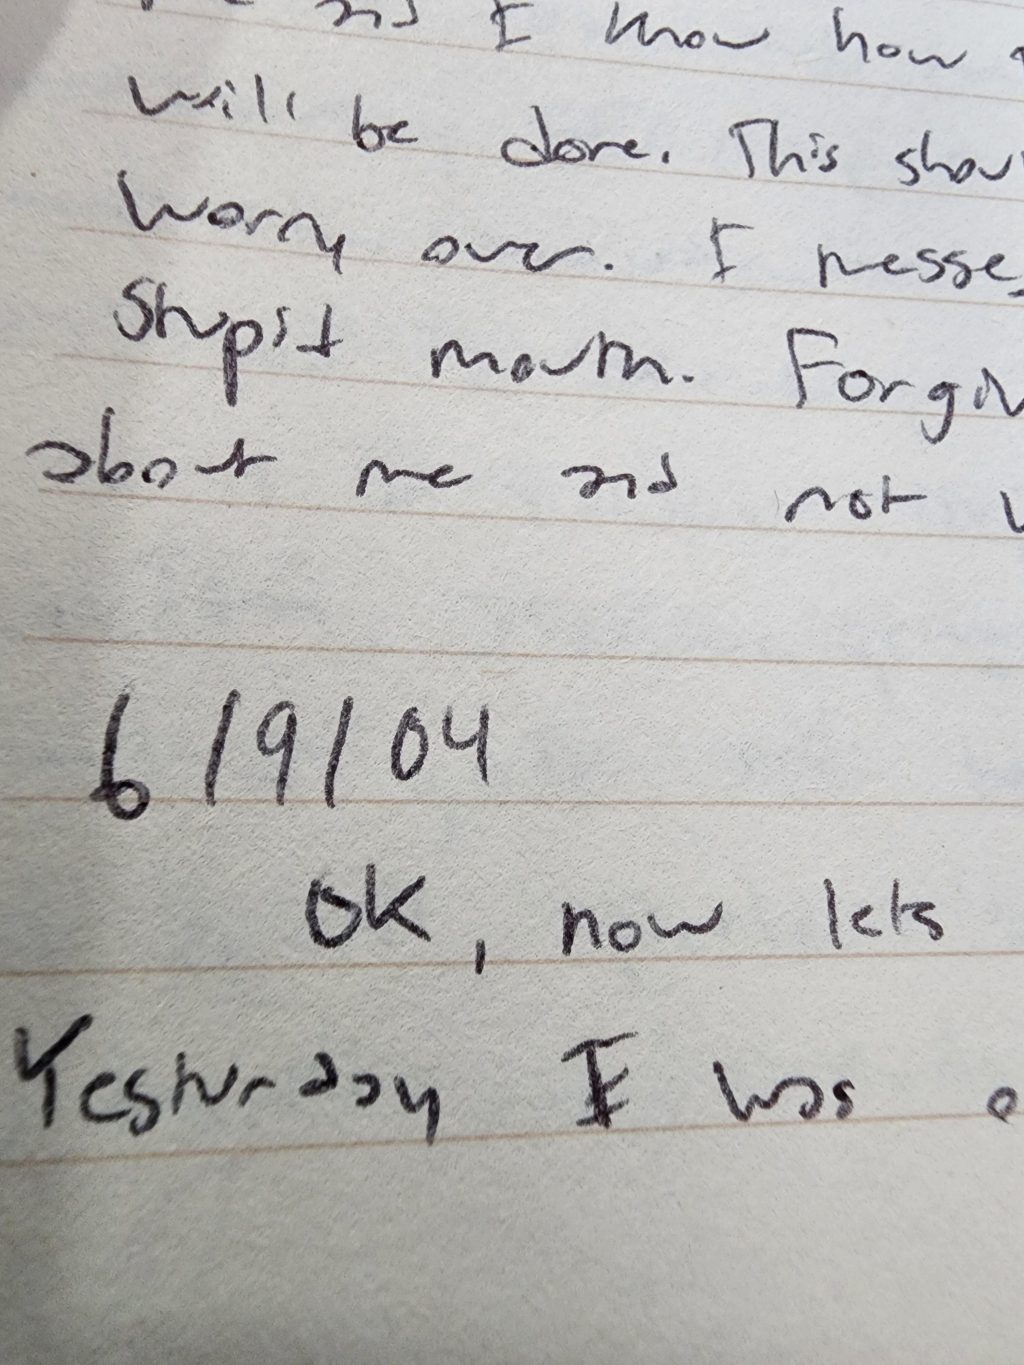 and I know how
will be done. This shou
worry over. I messe
Stupid mouth. Forgiv
about me and not
6/9/04
OK, now lets
Yesturday I was